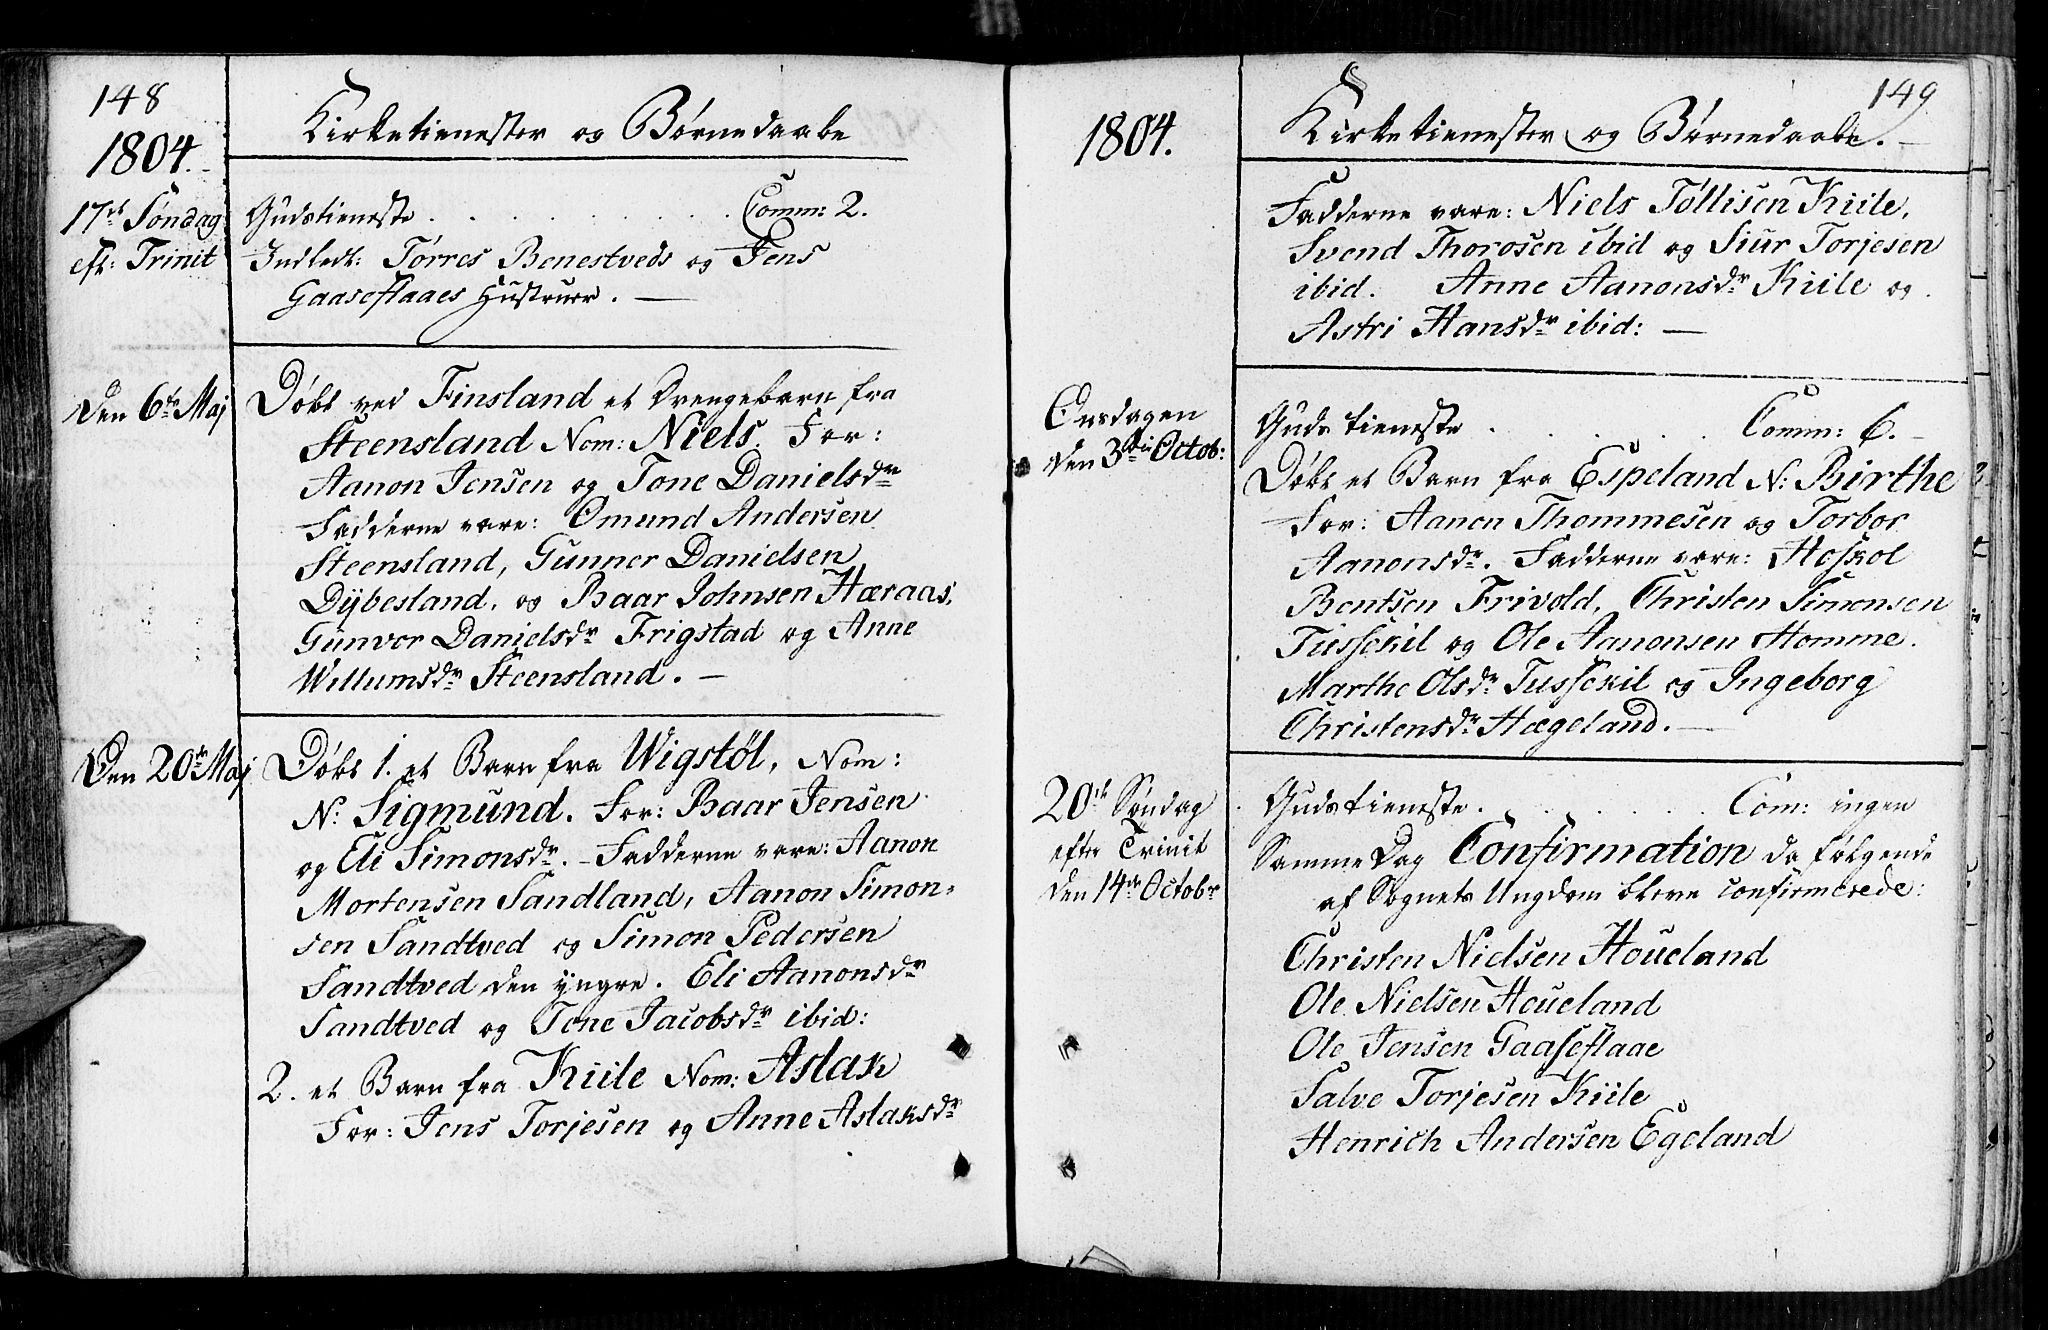 148
1804.
Kirketienester og Børnedaabe
17de Søndag
eft: Trinit
Gudstieneste . . . . . . . . Comm: 2.
Indledt: Tørres Benestveds og Jens
Gaaseflaaes Hustruer. —
Den 6te Maj
Døbt ved Finsland et Drengebarn fra
Steensland Nom: Niels. For:
Aanon Jensen og Tone Danielsdr
Fadderne vare: Omund Andersen
Steensland, Gunner Danielsen
Dÿbesland, og Baar Johnsen Hæraas,
Gunvor Danielsdr Frigstad og Anne
Willumsdr Steensland. —
Den 20de Maj
Døbt 1. et Barn fra Wigstøl, Nom:
N: Sigmund. For: Baar Jensen
og Eli Simonsdr. – Fadderne vare: Aanon
Mortensen Sandland, Aanon Simon-
sen Sandtved og Simon Pedersen
Sandtved den yngre. Eli Aanonsdr
Sandtved og Tone Jacobsdr ibid:
2. et Barn fra Kiile Nom: Aslak
For: Jens Torjesen og Anne Aslaksdr
149
1804.
Kirketienester og Børnedaabe. —
Fadderne vare: Niels Tøllisen Kiile,
Svend Thorosen ibid og Siur Torjesen
ibid. Anne Aanonsdr Kiile og
Astri Hansdr ibid: —
Onsdagen
den 3die Octob:
Gudstieneste . . . . . . Comm: 6. –
Døbt et Barn fra Espeland N: Birthe
For: Aanon Thommesen og Torbor
Aanonsdr. Fadderne vare: Hoskol
Bentsen Frivold, Christen Simonsen
Tusskil og Ole Aanonsen Homme.
Marthe Olsdr Tusskil og Ingeborg
Christensdr Hægeland. —
20de Søndag
efter Trinit
den 14de Octobr
Gudstieneste . . . . . . Com: ingen
Samme Dag Confirmation da følgende
af Sognets Ungdom bleve confirmerede:
Christen Nielsen Houeland
Ole Nielsen Houeland
Ole Jensen Gaaseflaae
Salve Torjesen Kiile
Henrich Andersen Egeland